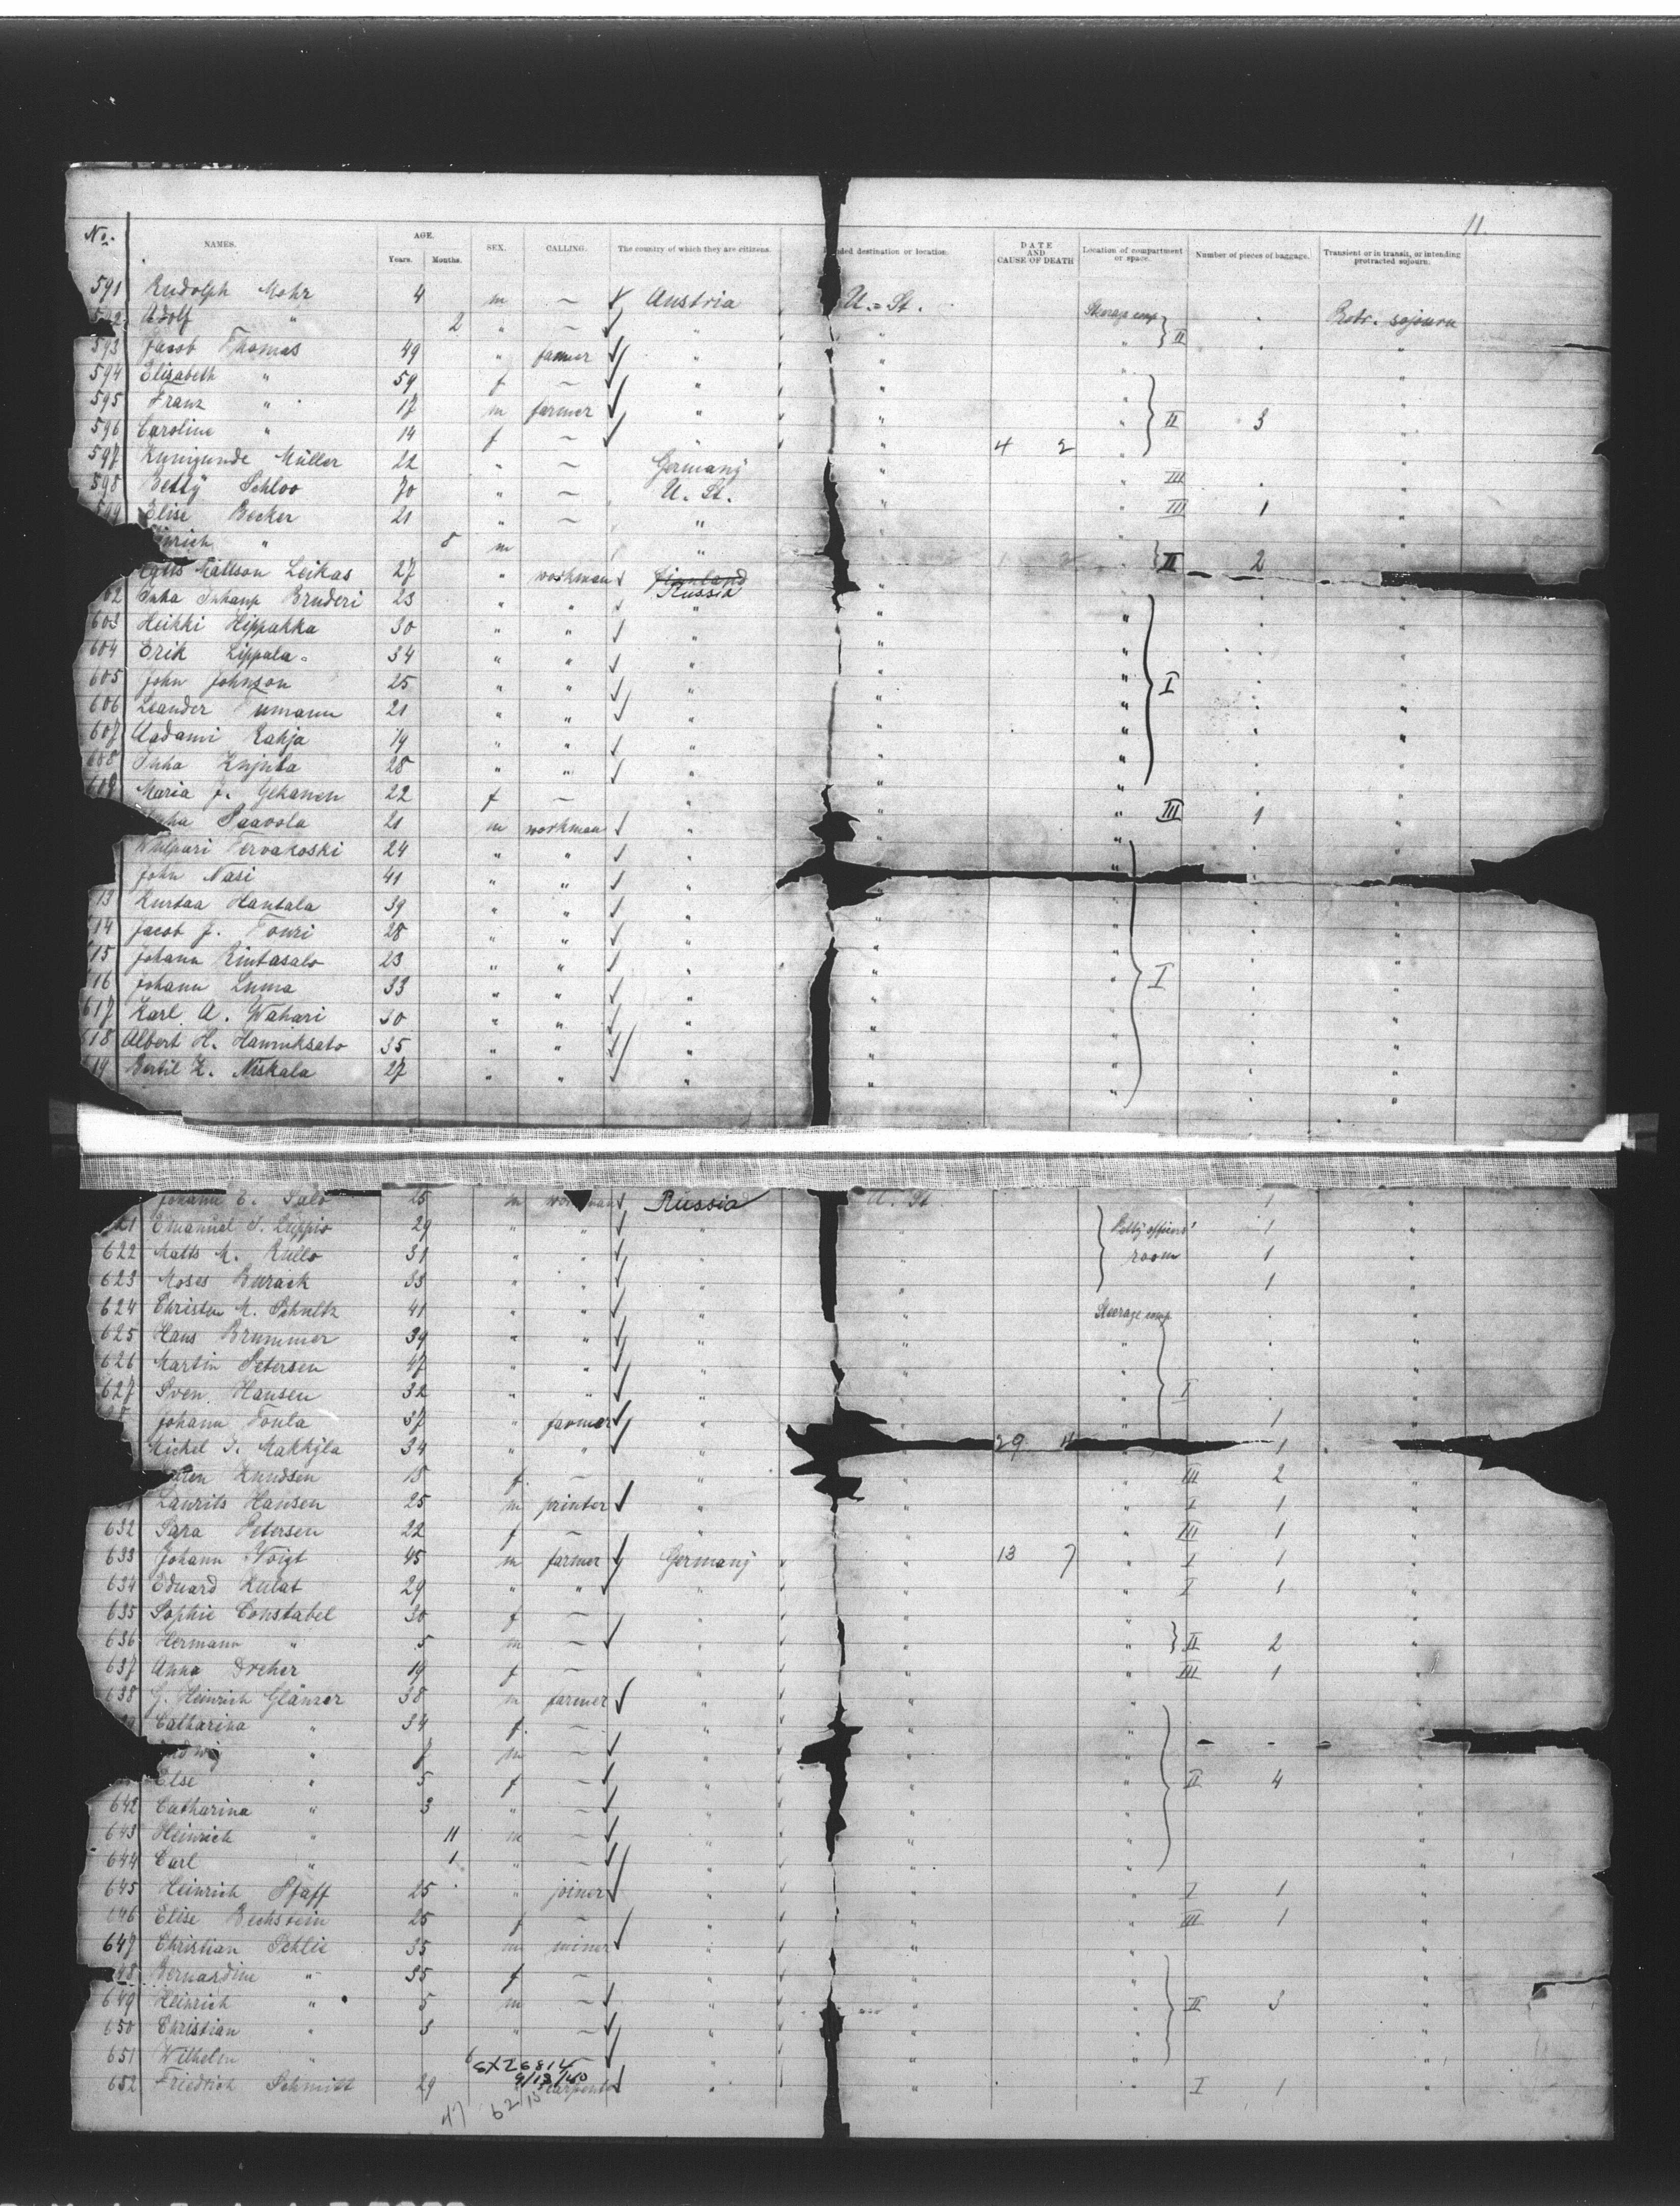 11.
No. NAMES. AGE. Years. Months. SEX. CALLING. The country of which they are citizens. ded destination or location. DATE AND CAUSE OF DEATH Location of compartment or space. Number of pieces of baggage. Transient or in transit, or intending protracted sojourn.
591 Rudolph Mohr 4 m — Austria U.-St. Steerage comp Protr. sojourn
592 Adolf " 2 " — " " II
593 Jacob Thomas 49 " farmer " "
594 Elisabeth " 59 f — " "
595 Franz " 17 m farmer " "
596 Caroline " 14 f — " " II 3
597 Kunigunde Müller 22 " — Germany " 4 2
598 Betty Schloo 70 " — U. St. " III
599 Elise Becker 21 " — " " III 1
inrich " 8 m " " II 2
Matts Mattson Leikas 27 " workman Finland Russia "
02 Juha Juhanp Bruderi 23 " " " "
603 Heikki Hippakka 30 " " " "
604 Erik Lippala 34 " " " "
605 John Johnson 25 " " " " I
606 Leander Tumann 21 " " " "
607 Aadami Rahja 19 " " " "
608 Juha Knjula 28 " " " "
609 Maria J. Gekanen 22 f — " "
Juha Saavola 21 m workman " " III 1
Tervakoski 24 " " " "
John Nasi 41 " " " "
13 Kustaa Hantala 39 " " " "
14 Jacob J. Touri 28 " " " "
15 Johann Rintasalo 23 " " " "
16 Johann Luma 33 " " " " I
617 Karl A. Wahari 30 " " " "
618 Albert H. Hannuksato 35 " " " "
19 Bertil K. Niskala 27 " " " "
Johann E. Salo 25 m workman Russia U. St. 1 "
21 Emanuel J. Luppio 29 " " " " Petty officers' 1 "
622 Matts M. Rullo 31 " " " " room 1 "
623 Moses Burack 33 " " " " 1 "
624 Christen M. Schultz 41 " " " " Steerage comp "
625 Hans Brummer 39 " " " " "
626 Martin Petersen 47 " " " " "
627 Sven Hansen 32 " " " " I "
Johann Toula 37 " farmer " " 1 "
Michel J. Makkyla 34 " " " " 29 11 1 "
Knudsen 18 f — " " III 2 "
Laurits Hansen 25 m printer " " I 1 "
632 Sara Petersen 22 f — " " III 1 "
633 Johann Voigt 45 m farmer Germany " 13 7 " I 1 "
634 Eduard Kulat 29 " " " " I 1 "
635 Sophie Constabel 30 f — " " "
636 Hermann " 5 m — " " II 2 "
637 Anna Dreher 19 f — " " III 1 "
638 G. Heinrich Glänzer 38 m farmer " " "
Catharina " 34 f — " " "
udwig " 7 m — " " "
Else " 5 f — " " II 4 "
642 Catharina " 3 " — " " "
643 Heinrich " 11 m — " " "
644 Carl " 1 " — " " "
645 Heinrich Pfaff 25 " joiner " " I 1 "
646 Elise Bechstein 25 f — " " III 1 "
647 Christian Schlie 35 m miner " " "
648 Bernardine " 35 f — " " "
649 Heinrich " 5 m — " " II 3 "
650 Christian " 3 " — " " "
651 Wilhelm " 6 — " " "
6X26814
9/13/40
652 Friedrich Schmitt 29 carpenter " " I 1 "
47 62/15